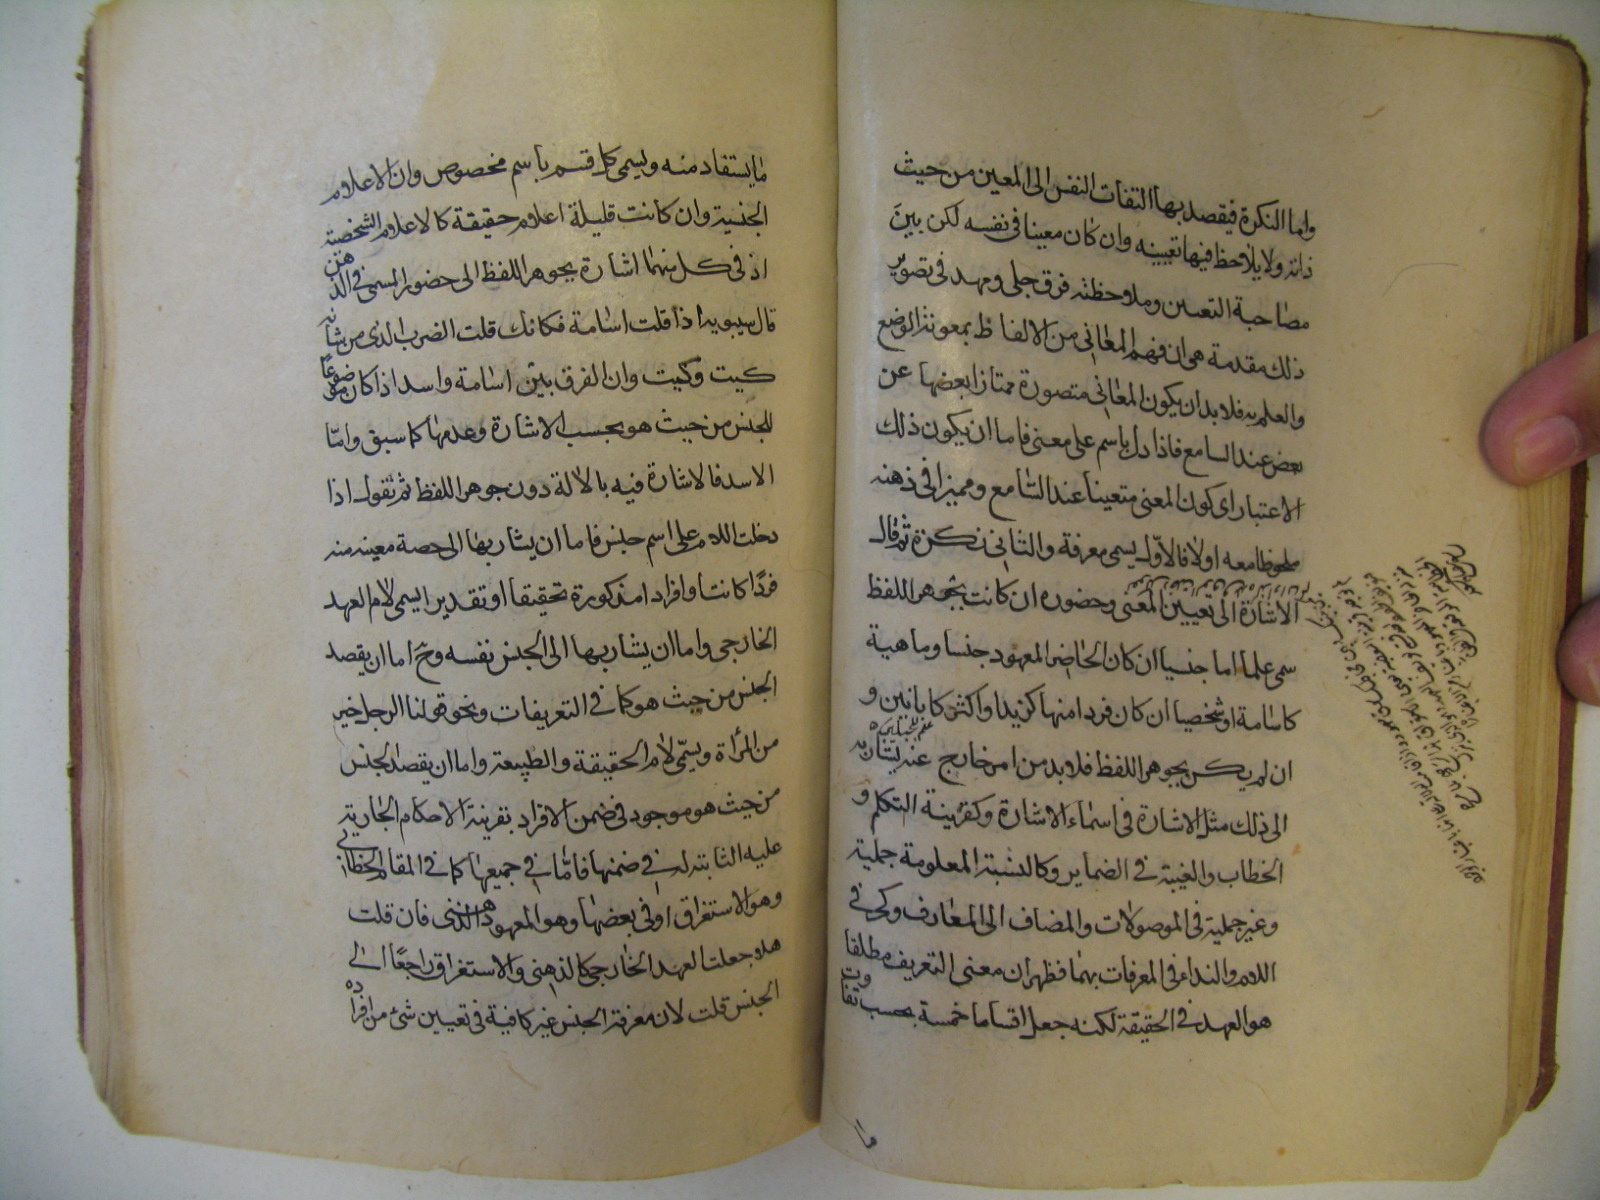 واما النكرة فيقصد بها التفات النفس الى المعين من حيث
ذاته ولا يلاحظ فيها تعيينه وان كان معينا فى نفسه لكن بين
مصاحبة التعيين وملاحظته فرق جلى ومهد فى تصوير
ذلك مقدمة هى ان فهم المعانى من الالفاظ بمعونة الوضع
والعلم به فلا بد ان يكون المعانى متصورة ممتازا بعضها عن
بعض عند السامع فاذا دل باسم على معنى فاما ان يكون ذلك
الاعتبار اى كون المعنى متعينا عند السامع ومميزا فى ذهنه
ملحوظا معه اولا فالاول يسمى معرفة والثانى نكرة ثم قال
الاشارة الى تعيين المعنى وحضوره ان كانت بجوهر اللفظ
سمى علما اما جنسيا ان كان الحاضر المعهود جنسا وماهية
كاسامة او شخصيا ان كان فردا منها كزيد او اكثر كابانين و
ان لم يكن بجوهر اللفظ فلا بد من امر خارج عنه يشار به
الى ذلك مثل الاشارة فى اسماء الاشارة وكقرينة التكلم و
الخطاب والغيبة فى الضماير وكالنسبة المعلومة جملية
وغير جملية فى الموصولات والمضاف الى المعارف وكحرفى
اللام والنداء فى المعرفات بهما فظهر ان معنى التعريف مطلقا
هو العهد فى الحقيقة لكنه جعل اقساما خمسة بحسب تفاوت
ما
ما يستفاد منه ويسمى كل قسم باسم مخصوص وان الاعلام
الجنسية وان كانت قليلة اعلام حقيقة كالاعلام الشخصية
اذ فى كل منهما اشارة بجوهر اللفظ الى حضور المسمى فى الذهن
قال سيبويه اذا قلت اسامة فكانك قلت الضرب الذى من شانه
كيت وكيت وان الفرق بين اسامة واسد اذا كان موضوعا
للجنس من حيث هو بحسب الاشارة وعدمها كما سبق واما
الاسد فالاشارة فيه بالالة دون جوهر اللفظ ثم نقول اذا
دخلت اللام على اسم جنس فاما ان يشار بها الى حصة معينة منه
فردا كانت او افرادا مذكورة تحقيقا او تقديرا يسمى لام العهد
الخارجى واما ان يشار بها الى الجنس نفسه وح اما ان يقصد
الجنس من حيث هو كما فى التعريفات ونحو قولنا الرجل خير
من المرأة ويسمى لام الحقيقة والطبيعة واما ان يقصد الجنس
من حيث هو موجود فى ضمن الافراد بقرينة الاحكام الجارية
عليه الثابتة له فى ضمنها فاما فى جميعها كما فى المقام الخطابى
وهو الاستغراق او فى بعضها وهو المعهود الذهنى فان قلت
هلا جعلت العهد الخارجى كالذهنى والاستغراق راجعا الى
الجنس قلت لان معرفة الجنس غير كافية فى تعيين شئ من افراده